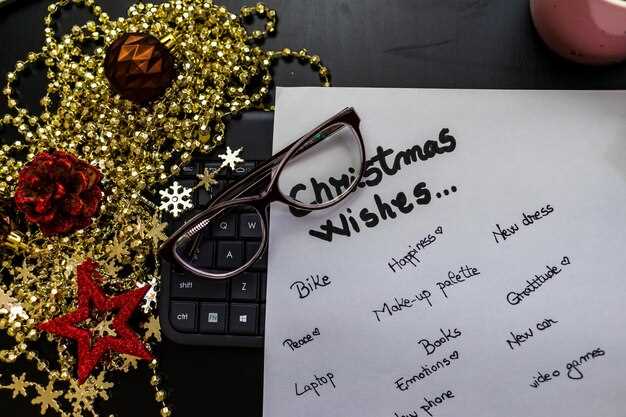 Christmas
Wishes...
Bike
Happiness
New dress
Make-up palette
Gratitude
Peace
Books
New car
Laptop
Emotions
video games
phone
Q W
A
shift Z
ctrl fn